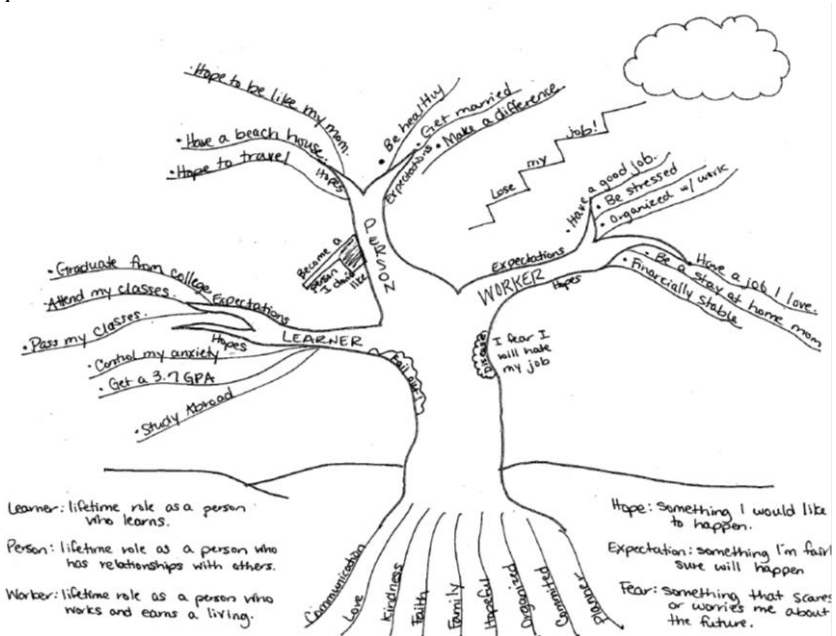 • Hope to be like my mom.
• Have a beach house.
• Hope to travel
Hopes
• Be healthy
• Get married
• Make a difference.
Expectations
PERSON
Become a
person
I don't
like
Lose my job!
• Have a good job.
• Be stressed
• Organized w/ work
Expectations
WORKER
Hopes
• Have a job I love.
• Be a stay at home mom
• Financially stable
Disease
I fear I
will hate
my job
• Graduate from college
Attend my classes.
• Pass my classes.
Expectations
LEARNER
Hopes
• Control my anxiety
• Get a 3.7 GPA
• Study Abroad
Fail out!
Learner: lifetime role as a person
who learns.
Person: lifetime role as a person who
has relationships with others.
Worker: lifetime role as a person who
works and earns a living.
Communication
Love
Kindness
Faith
Family
Hopeful
Organized
Committed
Planner
Hope: something I would like
to happen.
Expectation: something I'm fairl
sure will happen
Fear: something that scares
or worries me about
the future.